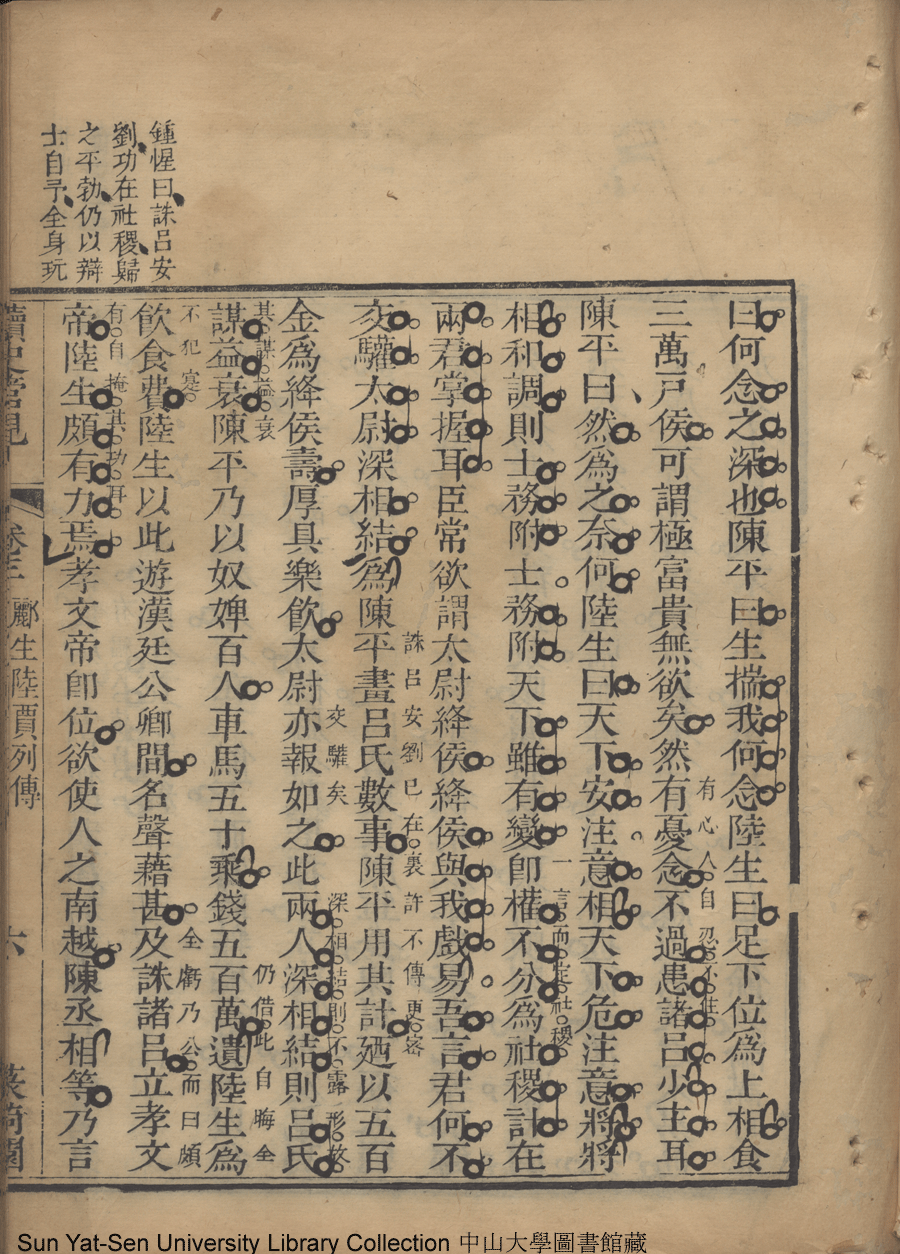 鍾惺曰誅呂安
劉功在社稷歸
之平勃仍以辯
士自予全身玩
曰何念之深也陳平曰生揣我何念陸生曰足下位爲上相食
三萬戸侯可謂極富貴無欲矣然有憂念不過患諸呂少主耳
有心人自忍不住
陳平曰然爲之奈何陸生曰天下安注意相天下危注意將將
相和調則士務附士務附天下雖有變卽權不分爲社稷計在
一言而定社稷
兩君掌握耳臣常欲謂太尉絳侯絳侯與我戲易吾言君何不
交驩太尉深相結爲陳平畫呂氏數事陳平用其計廼以五百
誅呂安劉已在裏許不傳更密
金爲絳侯壽厚具樂飮太尉亦報如之此兩人深相結則呂氏
交驩矣
深相結則不露形故
謀益衰陳平乃以奴婢百人車馬五十乘錢五百萬遺陸生爲
其謀益衰
仍借此自晦全
飮食費陸生以此遊漢廷公卿間名聲藉甚及誅諸呂立孝文
不犯寔
全虧乃公而曰頗
帝陸生頗有力焉孝文帝卽位欲使人之南越陳丞相等乃言
有自掩其功再
讀史管見
卷三
酈生陸賈列傳
六